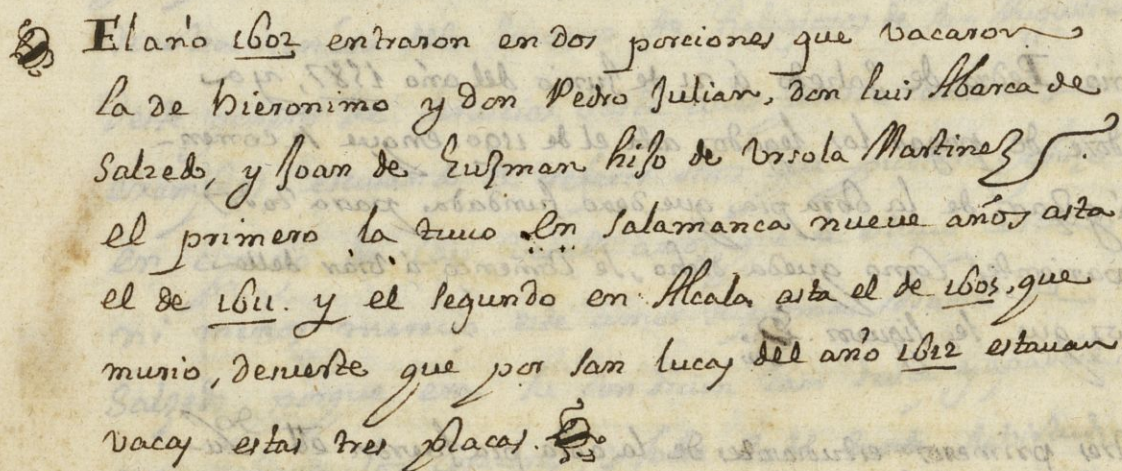 El año 1602 entraron en dos porciones que vacaron
la de hieronimo y don Pedro Julian, don luis Abarca de
Salzedo, y Joan de Guzman hijo de Ursola Martinez
el primero la tuuo en Salamanca nueue años asta
el de 1611. y el segundo en Alcala asta el de 1605, que
murio, desuerte que por san lucas del año 1612 estauan
vacas estas tres plaças.